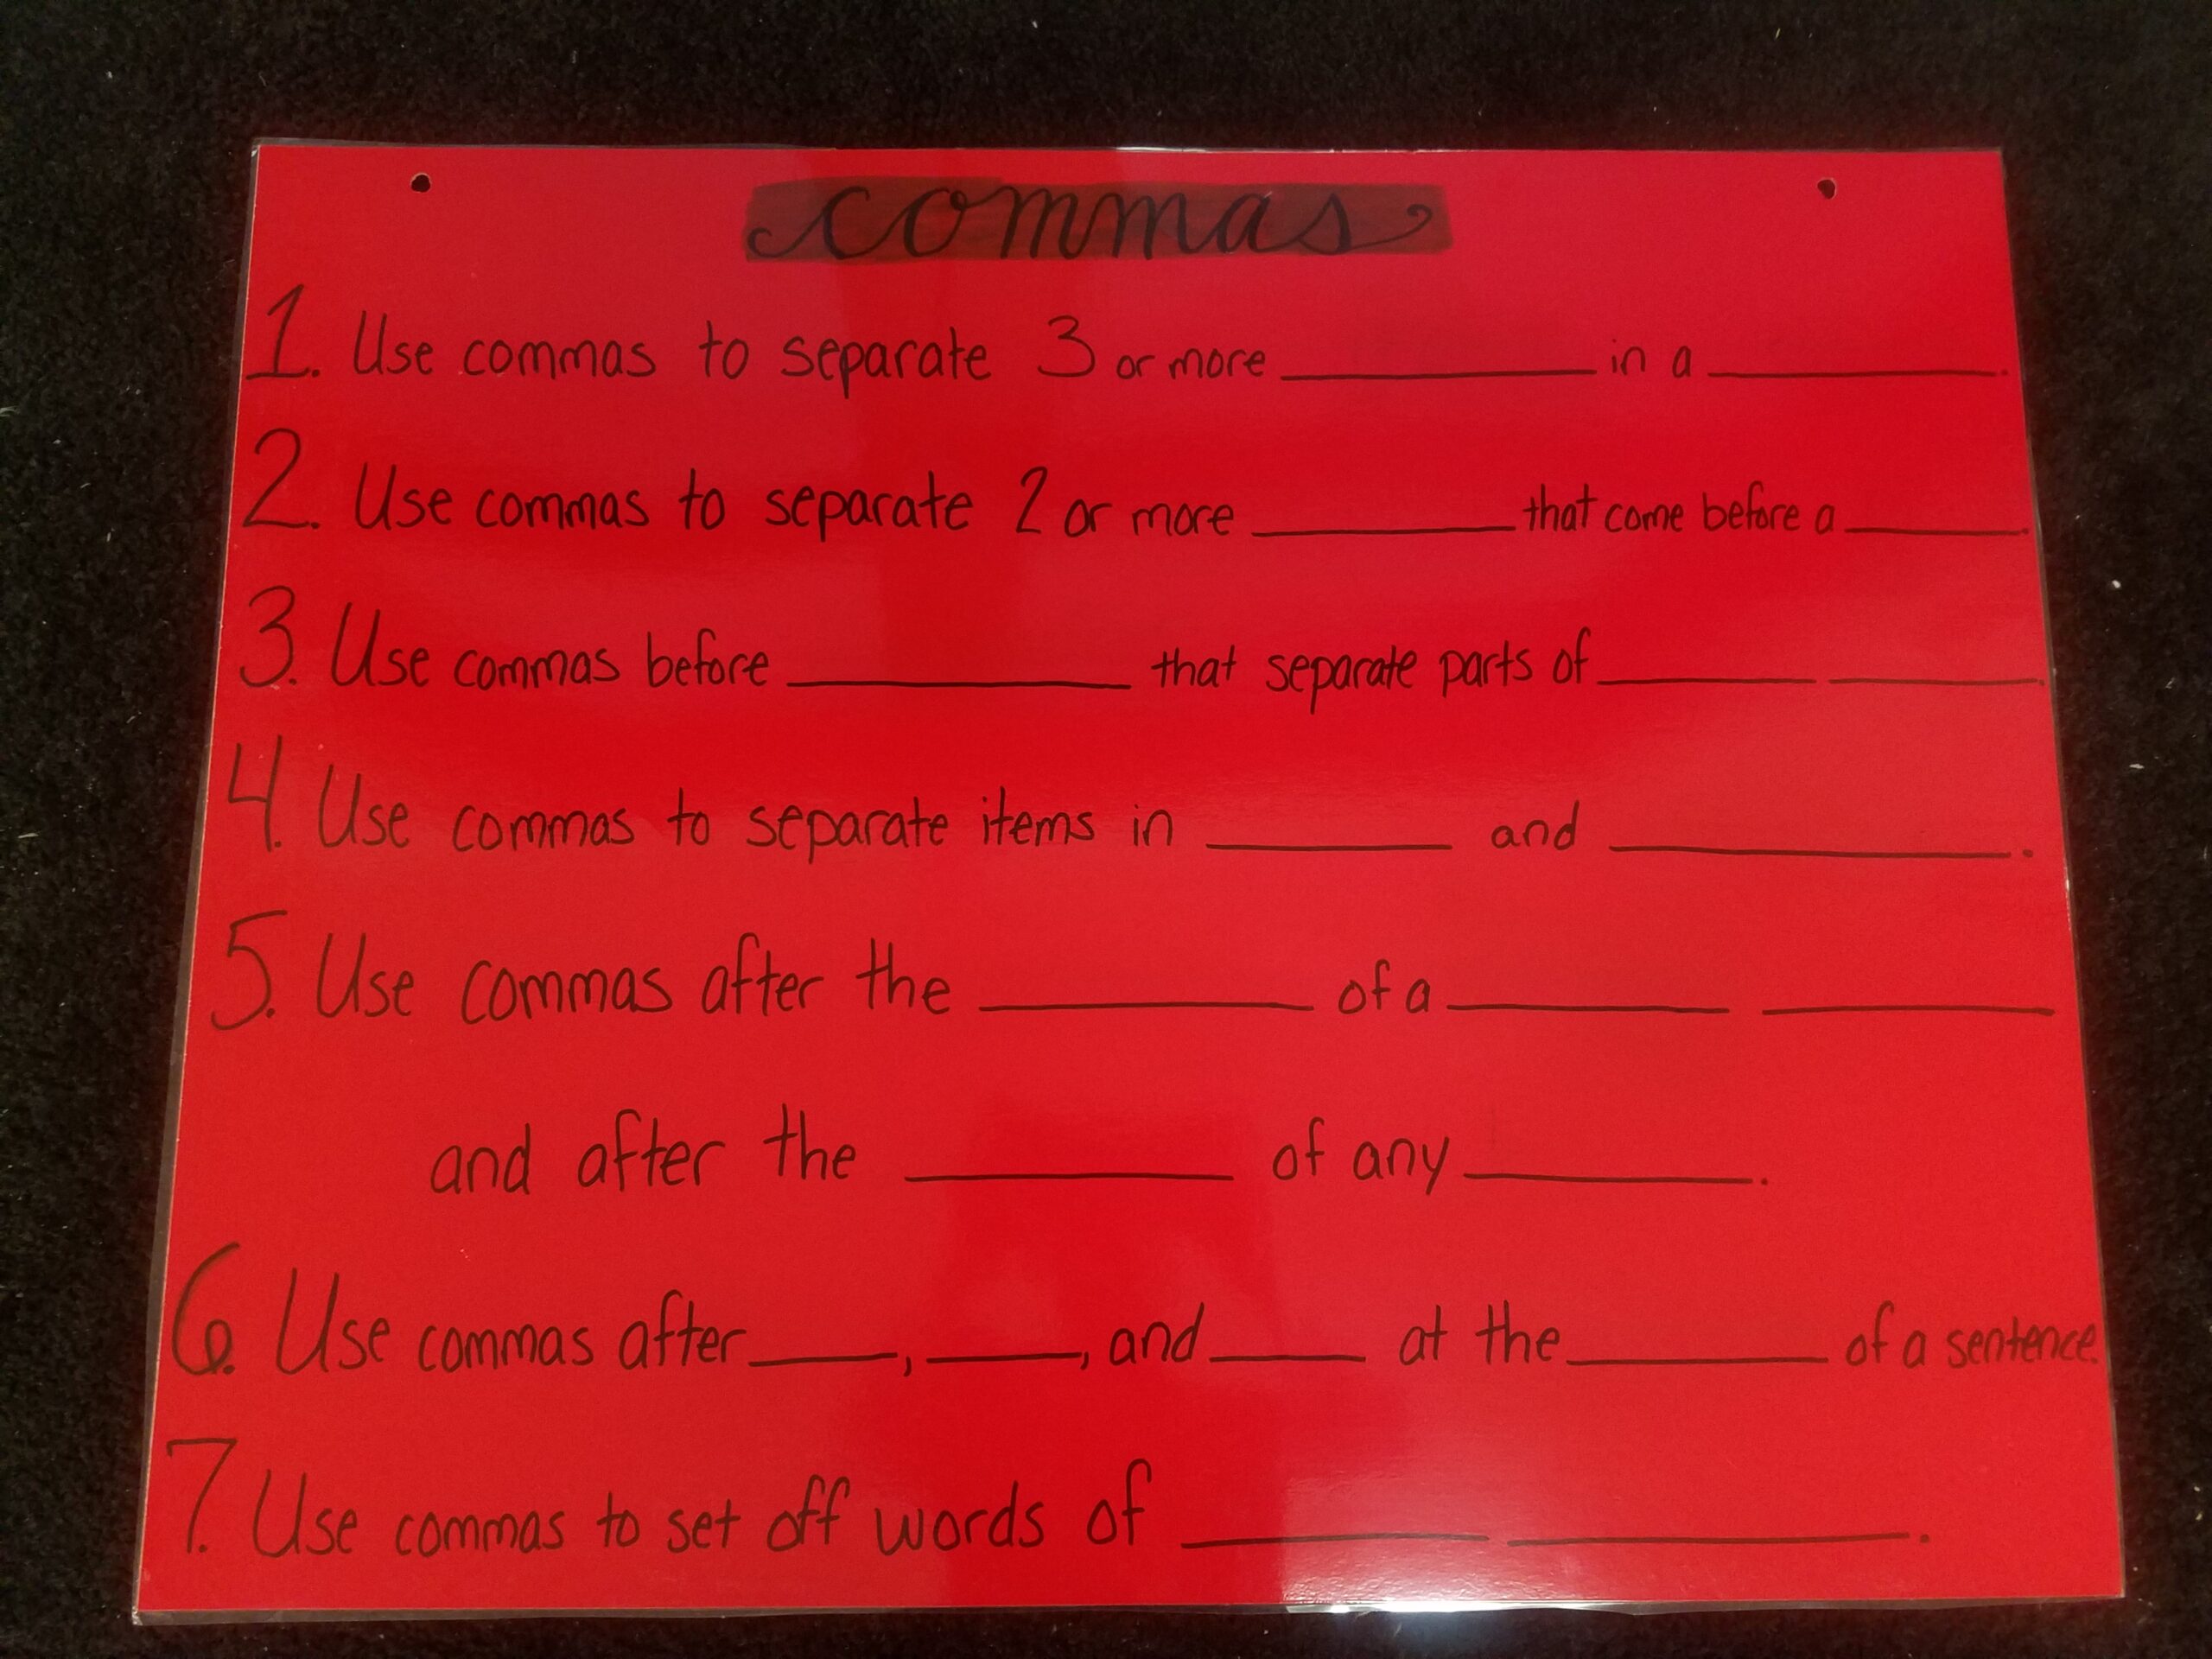 commas
1. Use commas to separate 3 or more __________ in a __________.
2. Use commas to separate 2 or more __________ that come before a ________.
3. Use commas before __________ that separate parts of ________ ________.
4. Use commas to separate items in ________ and __________.
5. Use commas after the __________ of a __________ __________
and after the __________ of any __________.
6. Use commas after _____, _____, and _____ at the ________ of a sentence.
7. Use commas to set off words of __________ __________.